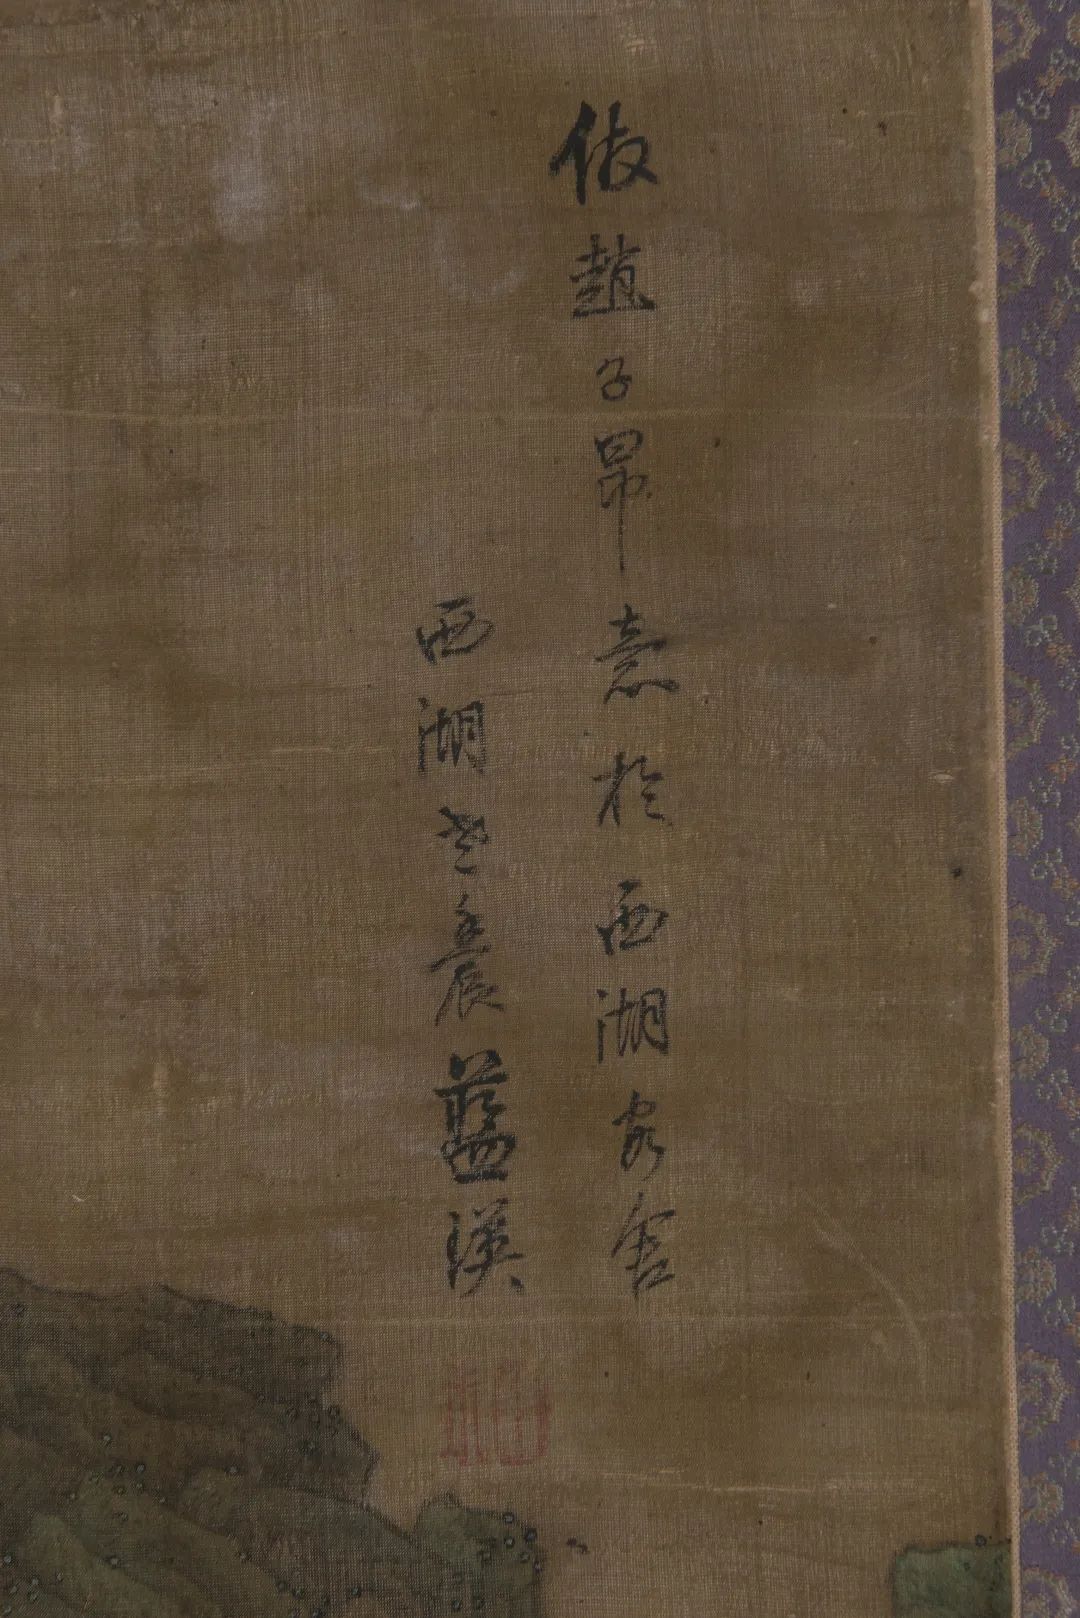 倣趙子昂意於西湖客舍
西湖老農藍瑛